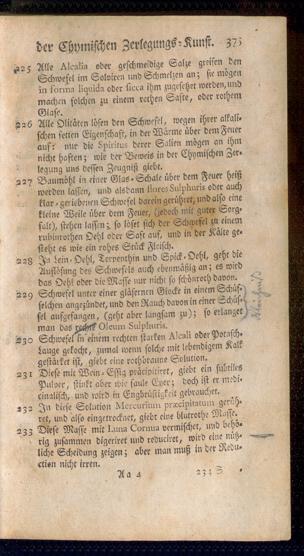 der Chymischen Zerlegungs-Kunst. 375
225 Alle Alcalia oder geschmeidige Salze greifen den
Schwefel im Solviren und Schmelzen an; sie mögen
in forma liquida oder sicca ihm zugesetzet werden, und
machen solchen zu einem rothen Safte, oder rothem
Glase.
226 Alle Olitäten lösen den Schwefel, wegen ihrer alkali-
schen fetten Eigenschaft, in der Wärme über dem Feuer
auf: nur die Spiritus derer Salien mögen an ihm
nicht haften; wie der Beweis in der Chymischen Zer-
legung uns dessen Zeugniß giebt.
227 Baumöhl in einer Glas-Schale über dem Feuer heiß
werden lassen, und alsdann flores Sulphuris oder auch
klar-geriebenen Schwefel darein gerühret, und also eine
kleine Weile über dem Feuer, (jedoch mit guter Sorg-
falt), stehen lassen; so löset sich der Schwefel zu einem
rubinrothen Oehl oder Saft auf, und in der Kälte ge-
stehet es wie ein rohes Stück Fleisch.
228 In Lein-Oehl, Terpenthin und Spick-Oehl, geht die
Auflösung des Schwefels auch ebenmäßig an; es wird
das Oehl oder die Masse nur nicht so schönroth davon.
229 Schwefel unter einer gläsernen Glocke in einem Schüs-
selchen angezündet, und den Rauch davon in einer Schüs-
sel aufgefangen, (geht aber langsam zu); so erlanget
man das rechte Oleum Sulphuris.
230 Schwefel in einem rechten starken Alcali oder Potasch-
Lauge gekocht, zumal wenn solche mit lebendigem Kalk
gestärket ist, giebt eine rothbraune Solution.
231 Diese mit Wein-Essig präcipitiret, giebt ein subtiles
Pulver, stinkt aber wie faule Eyer; doch ist er medi-
cinalisch, und wird in Engbrüstigkeit gebrauchet.
232 In diese Solution Mercurium præcipitatum gerüh-
ret, und also eingetrocknet, giebt eine blutrothe Masse.
233 Diese Masse mit Luna Cornua vermischet, und behö-
rig zusammen digeriret und reduciret, wird eine nütz-
liche Scheidung zeigen; aber man muß in der Redu-
ction nicht irren.
Aa 4 234 S